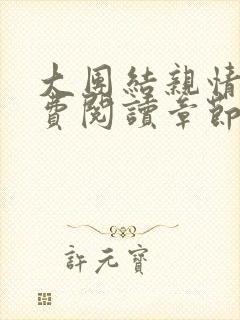 大團結親情
費閱讀章節
許元寶